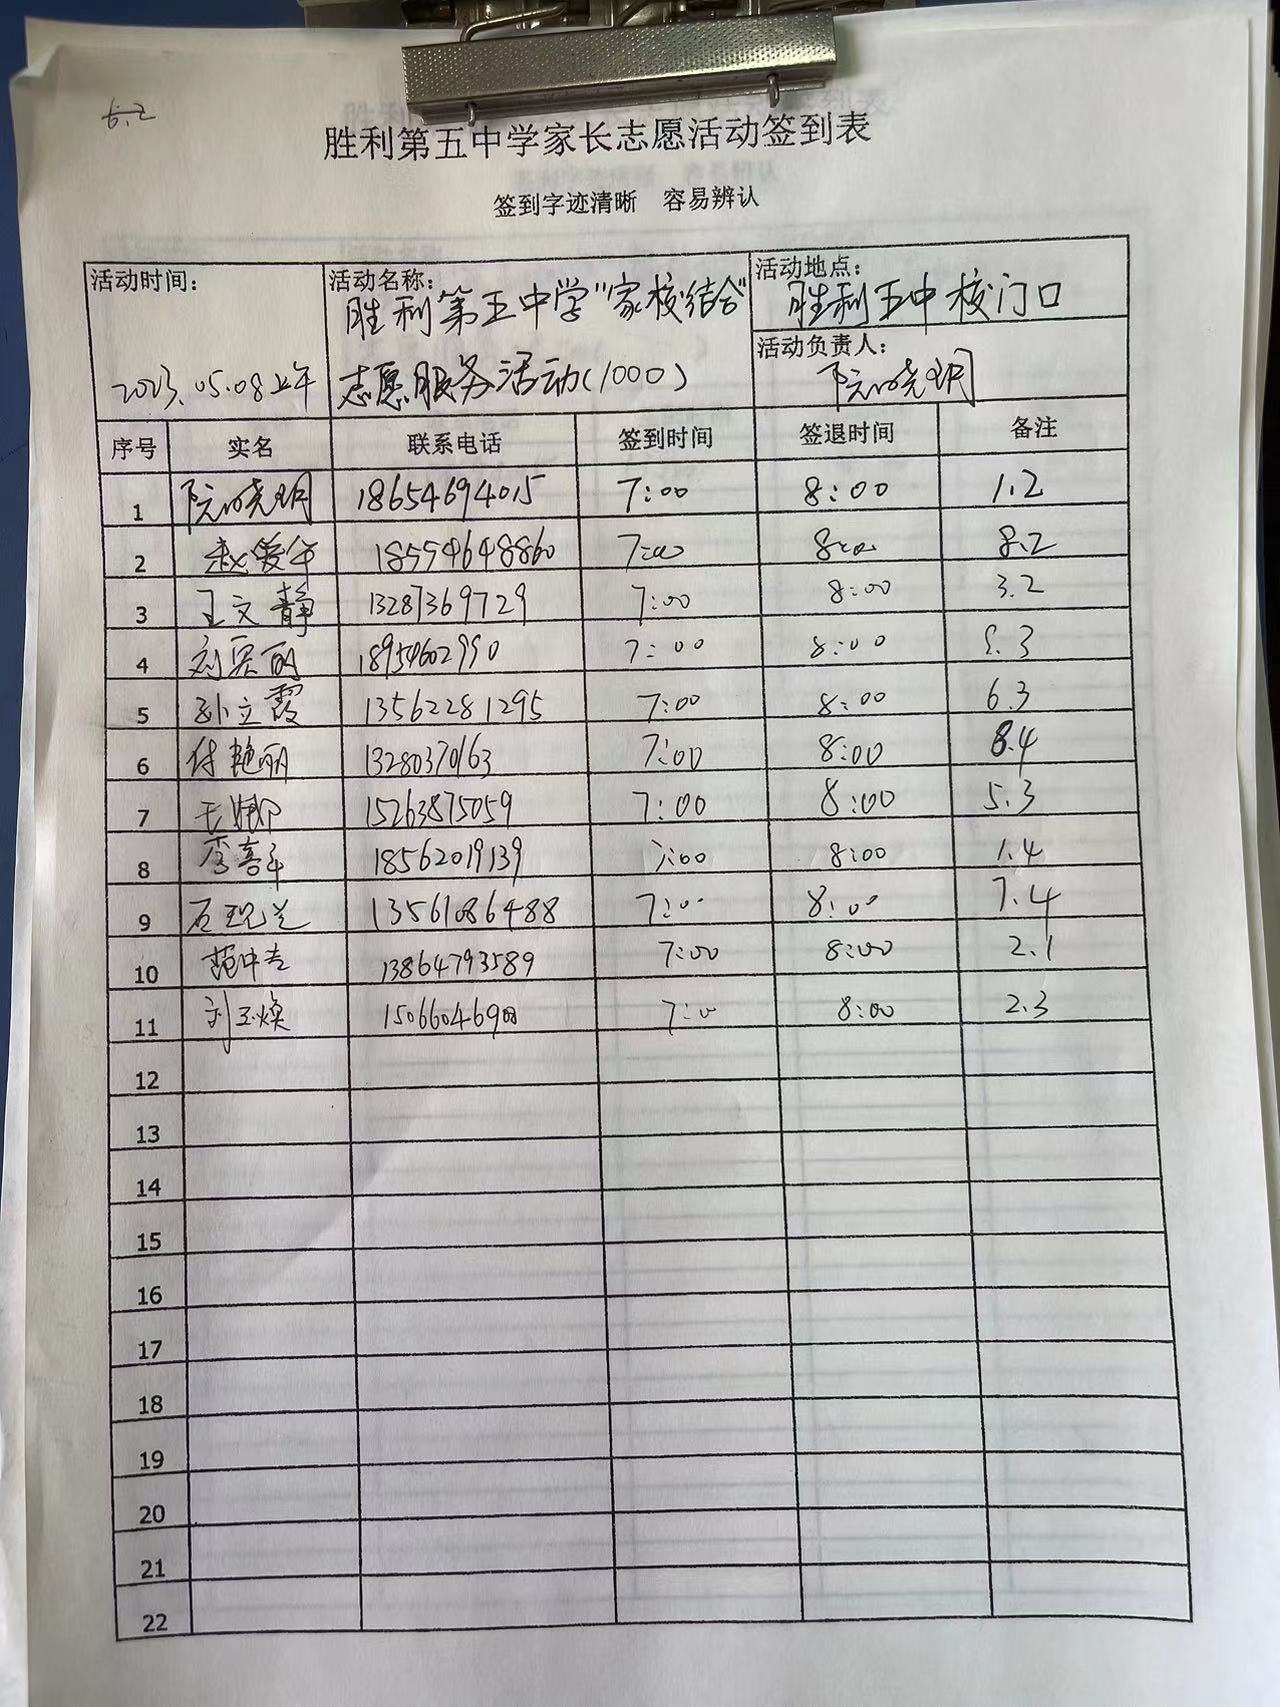 6.2
胜利第五中学家长志愿活动签到表
签到字迹清晰 容易辨认
活动时间:
2023.05.08上午
活动名称:
胜利第五中学"家校结合"
志愿服务活动(1000)
活动地点:
胜利五中校门口
活动负责人:
阮晓玥
序号 实名 联系电话 签到时间 签退时间 备注
1 阮晓玥 18654694015 7:00 8:00 1.2
2 18554648860 7:00 8:00 8.2
3 王文静 13287369729 7:00 8:00 3.2
4 18954602990 7:00 8:00 3
5 孙立霞 13562281295 7:00 8:00 6.3
6 付艳丽 13280370163 7:00 8:00 8.4
7 王娜 15263875059 7:00 8:00 5.3
8 18562019139 7:00 8:00 1.4
9 13561086488 7:00 8:00 7.4
10 13864793589 7:00 8:00 2.1
11 刘玉焕 7:00 8:00 2.3
12
13
14
15
16
17
18
19
20
21
22